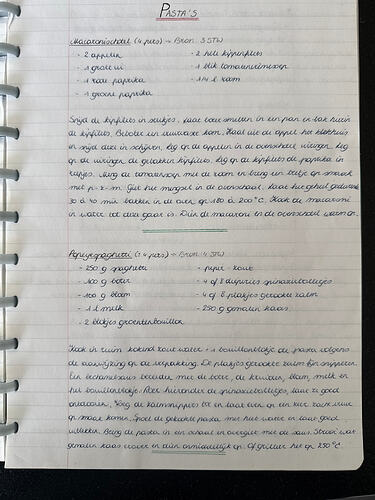 PASTA'S
Macaronischotel (4 pers) → Bron: 3 STW
- 2 appelen
- 2 hele kipfilets
- 1 grote ui
- 1 blik tomatencrèmesoep
- 1 rode paprika
- 1/4 l room
- 1 groene paprika
Snijd de kipfilets in stukjes. Laat boter smelten in een pan en bak hierin
de kipfilets. Beboter een vuurvaste kom. Haal uit de appel het klokhuis
en snijd deze in schijven. Leg op de appelen in de ovenschaal uiringen. Leg
op de uiringen de gebakken kipfilets. Leg op de kipfilets de paprika in
reepjes. Meng de tomatensoep met de room en breng een beetje op smaak
met p. + z. Giet het mengsel in de ovenschaal. Laat het geheel gedurende
30 à 40 min bakken in de oven op 180 à 200°C. Kook de macaroni
in water tot deze gaar is. Dien de macaroni en de ovenschotel warm op.
(± 4 pers) → Bron: 4 STW
- 250 g spaghetti
- peper - zout
- 100 g boter
- 4 of 8 diepvries spinazieballetjes
- 100 g bloem
- 4 of 8 plakjes gerookte zalm
- 1 l melk
- 250 g gemalen kaas
- 2 blokjes groentenbouillon
Kook in ruim kokend zout water + 1 bouillonblokje de pasta volgens
de aanwijzing op de verpakking. De plakjes gerookte zalm fijn snipperen
Een bechamelsaus bereiden met de boter, de bloem, melk en
het bouillonblokje. Roer hieronder de spinazieballetjes, laat ze goed
ontdooien. Voeg de zalmsnippers toe en laat even op een zeer zacht vuur
op smaak komen. Spoel de gekookte pasta met heet water en laat goed
uitlekken. Breng de pasta in een schaal en overgiet met de saus. Strooi wat
gemalen kaas erover en dien onmiddellijk op. Of gratineer het op 250°C.